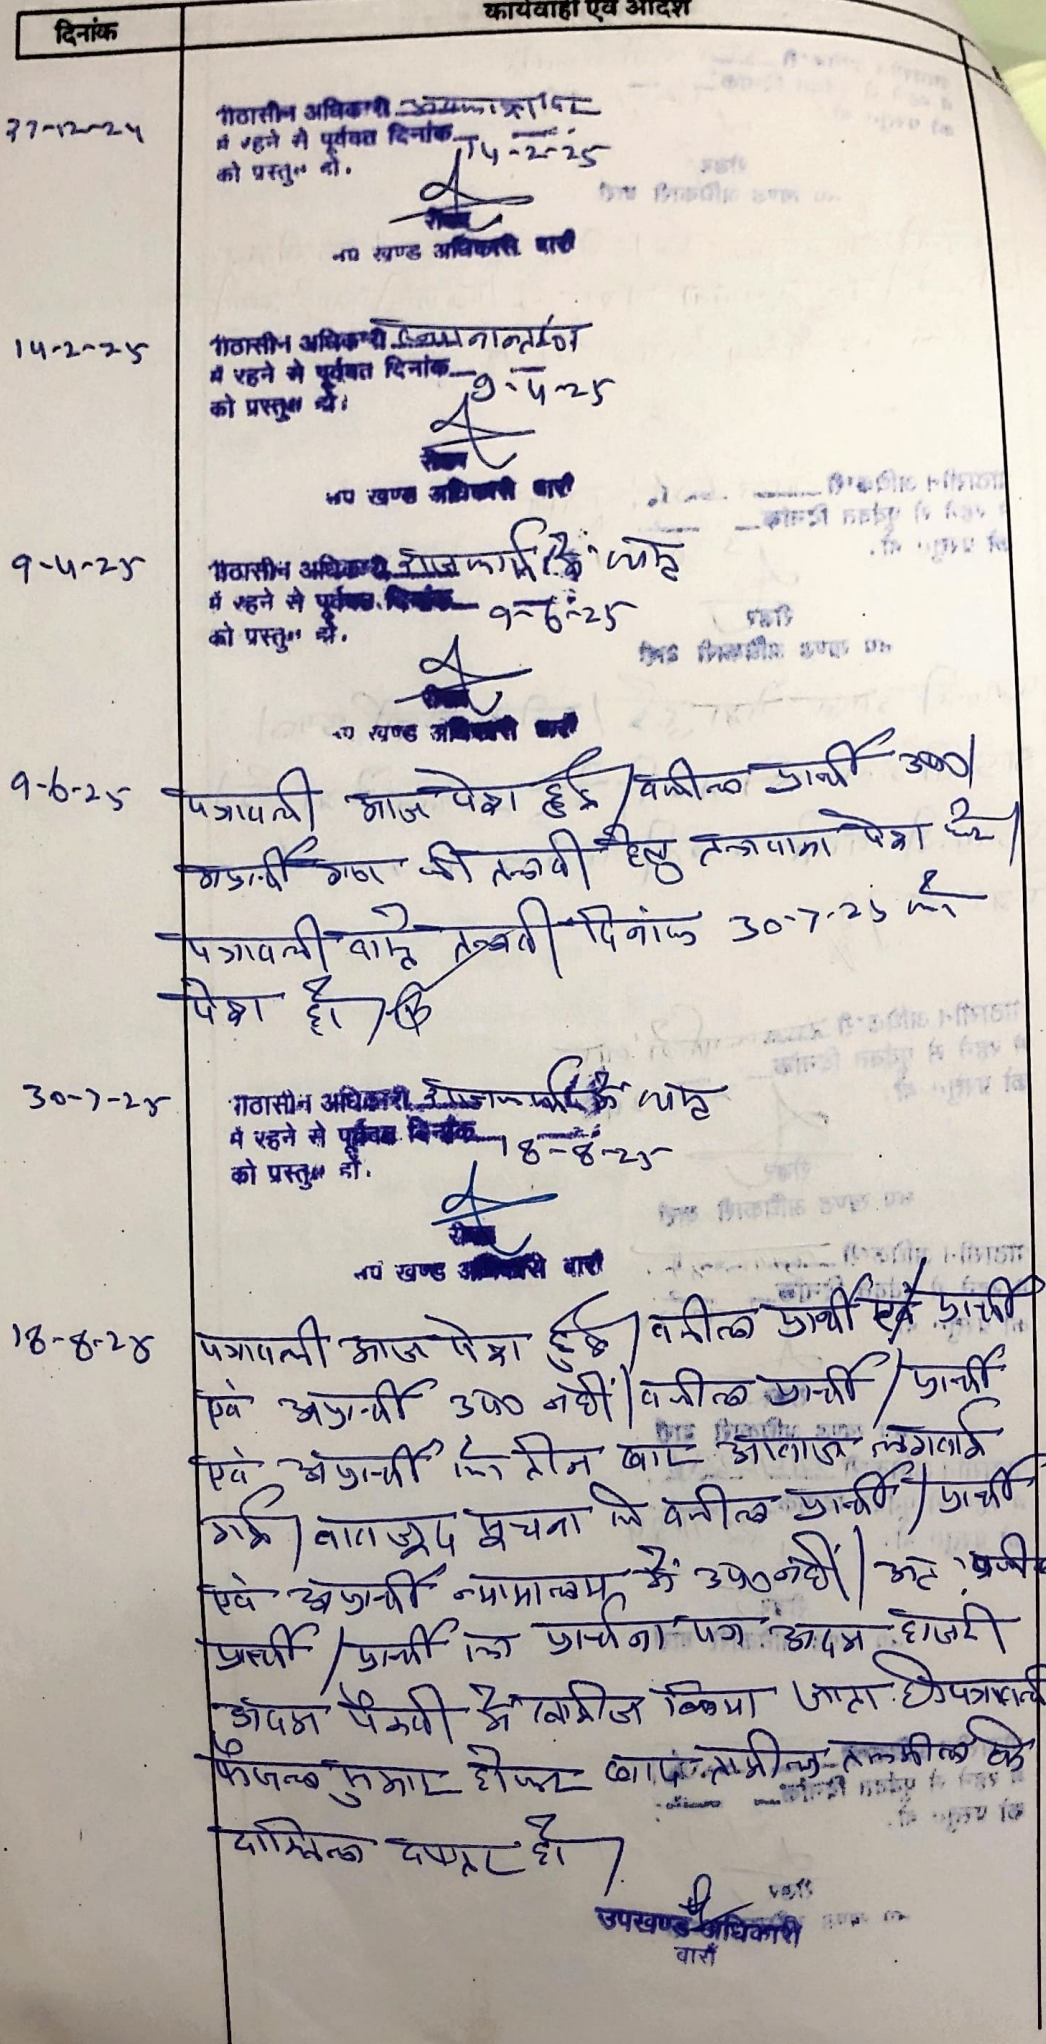 दिनांक
कार्यवाही एवं आदेश
27-12-24
पीठासीन अधिकारी
में रहने से पूर्ववत दिनांक 14-2-25
को प्रस्तुत हो.
रीडर
उप खण्ड अधिकारी बारां
14-2-25
पीठासीन अधिकारी
में रहने से पूर्ववत दिनांक 9-4-25
को प्रस्तुत हो.
रीडर
उप खण्ड अधिकारी बारां
9-4-25
पीठासीन अधिकारी राजकार्य से बाहर
में रहने से पूर्ववत दिनांक 9-6-25
को प्रस्तुत हो.
रीडर
उप खण्ड अधिकारी बारां
9-6-25
पत्रावली आज पेश हुई / वकील प्रार्थी उप0 /
अप्रार्थी गण की तलबी हेतु तलवाना पेश करे /
पत्रावली वास्ते तलबी दिनांक 30-7-25 को
पेश हो /
30-7-25
पीठासीन अधिकारी राजकार्य से बाहर
में रहने से पूर्ववत दिनांक 18-8-25
को प्रस्तुत हो.
रीडर
उप खण्ड अधिकारी बारां
18-8-25
पत्रावली आज पेश हुई / वकील प्रार्थी एवं प्रार्थी
एवं अप्रार्थी उप0 नहीं / वकील प्रार्थी / प्रार्थी
एवं अप्रार्थी को तीन बार आवाज लगवाई
गई / बावजूद सूचना के वकील प्रार्थी / प्रार्थी
एवं अप्रार्थी न्यायालय में उप0 नहीं / अतः वकील
प्रार्थी / प्रार्थी का प्रार्थना पत्र अदम हाजरी
अदम पैरवी में खारीज किया जाता है / पत्रावली
फैसल शुमार होकर बाद तामील तकमील के
दाखिल दफ्तर हो /
उपखण्ड अधिकारी
बारां